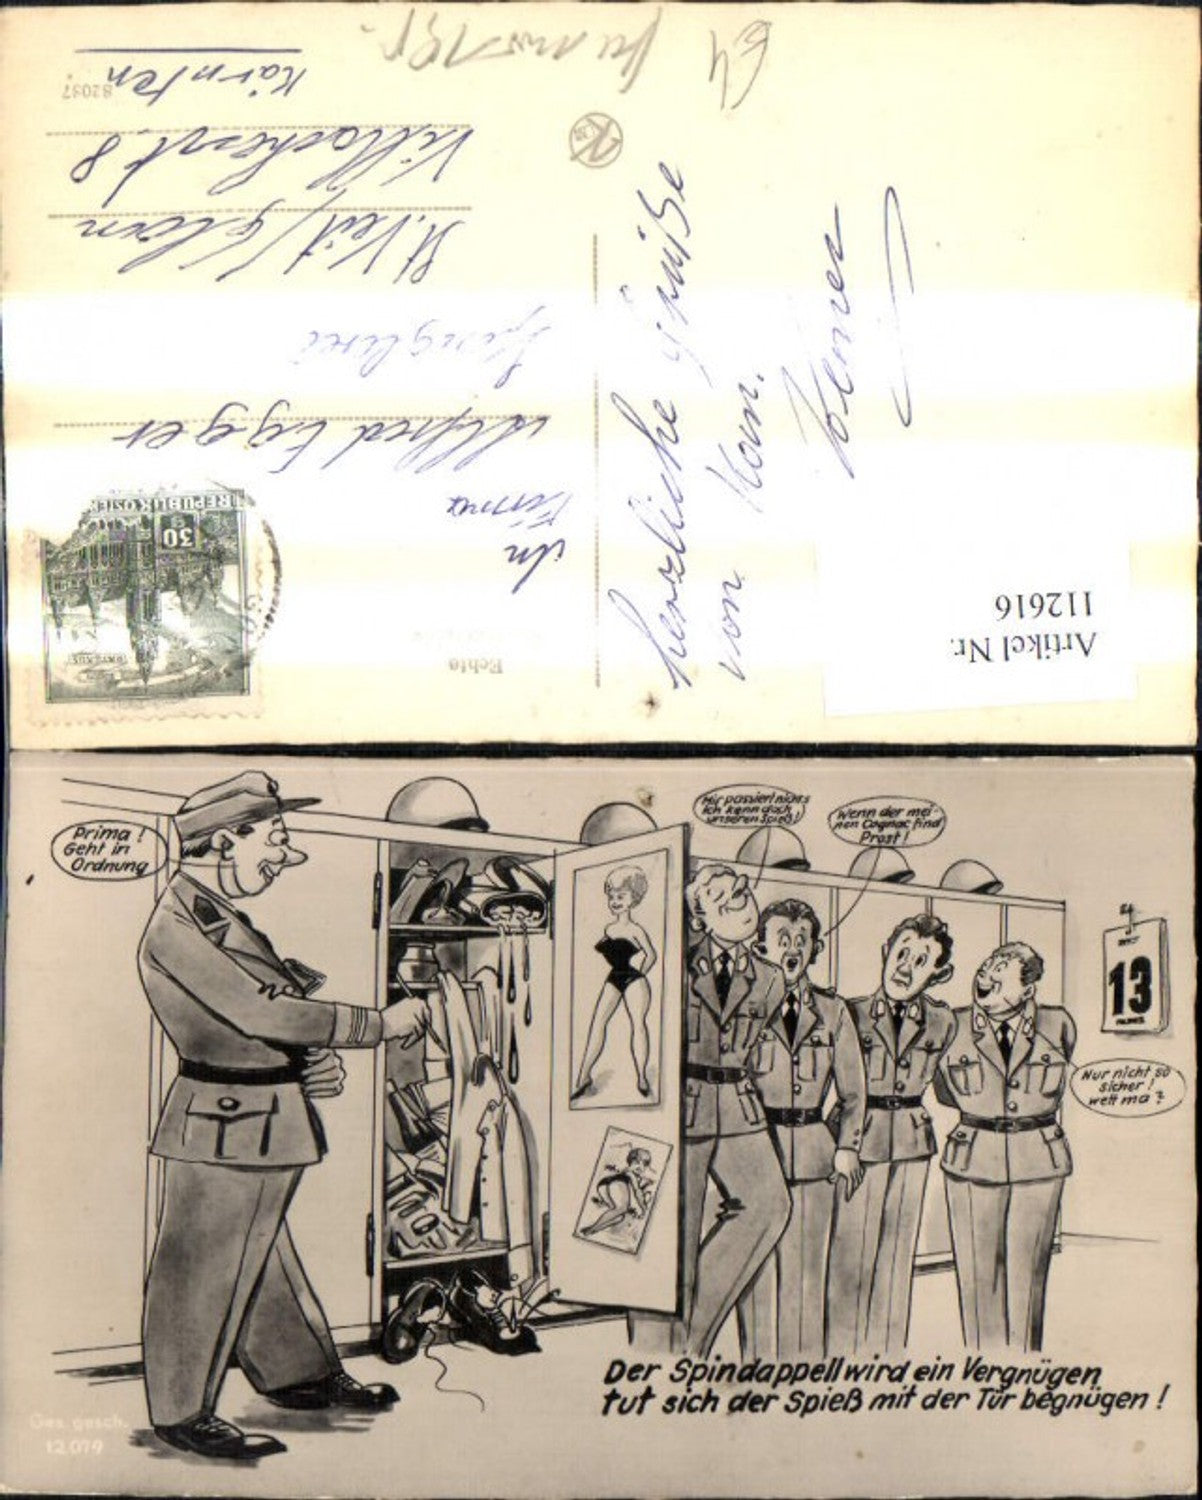 Artikel Nr.
112616
Echte
REPUBLIK ÖSTER
30
An
Firma
Alfred Egger
St. Veit/Glan
Villacherst. 8
Kärnten
82037
herzliche Grüße
von Kam.
Werner
64
Prima !
Geht in
Ordnung
Mir passiert nichts
ich kenn doch
unseren Spieß!
Wenn der mei-
nen Cognac find
Prost !
13
Nur nicht so
sicher !
wett ma ?
Der Spindappell wird ein Vergnügen
tut sich der Spieß mit der Tür begnügen !
Ges. gesch.
12 079